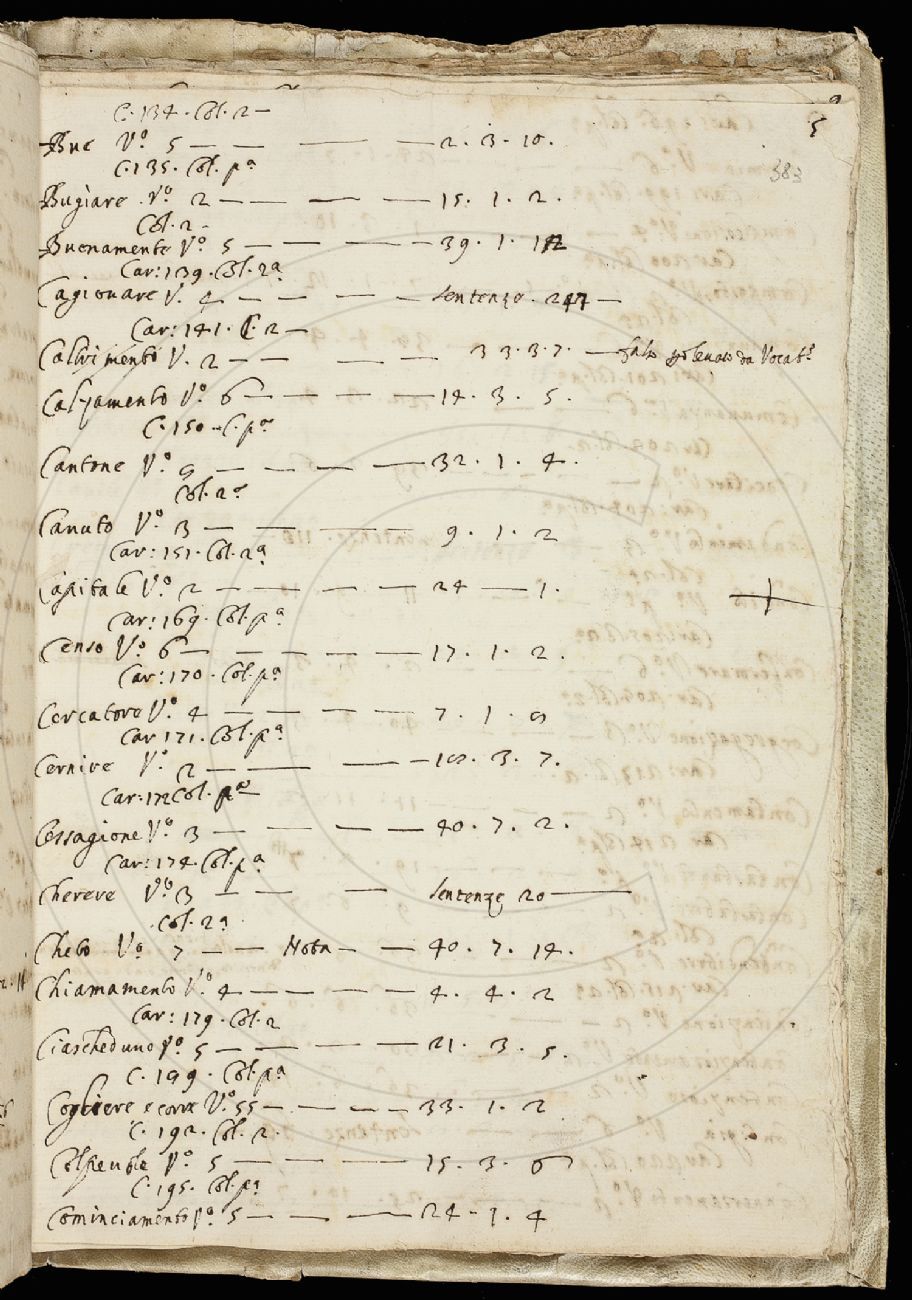 5
383
C. 134. Col. 2 —
Bue Vº 5 — — — 2. 3. 10.
C. 135. Col. pª
Bugiare Vº 2 — — — 15. 1. 2.
Col. 2 —
Buonamente Vº 5 — — — 39. 1. 12
Car: 139. Col. 2ª
Cagionare V. 4 — — — Sentenze. 247 —
Car: 141. C. 2 —
V. 2 — — — 33. 3. 7. — da Vocabº
Calzamento Vº 6 — — — 14. 3. 5.
C. 150 — C. pª
Cantone Vº 9 — — — 32. 1. 4.
Col. 2ª
Canuto Vº 3 — — — 9. 1. 2
Car: 151. Col. 2ª
Capitale Vº 2 — — — 24 — 1.
Car: 169. Col. pª
Censo Vº 6 — — — 17. 1. 2.
Car: 170. Col. pª
Cercatore Vº 4 — — — 7. 1. 9
Car 171. Col. pª
Cernire Vº 2 — — — 3. 7.
Car. 172 Col. pª
Cessagione Vº 3 — — — 40. 7. 2.
Car: 174. Col. pª
Cherere Vº 3 — — — Sentenze 20 —
Col. 2ª
Cheto Vº 7 — — Nota — — 40. 7. 14.
Chiamamento Vº 4 — — — 4. 4. 2
Car: 179. Col. 2
Ciascheduno Vº 5 — — — 21. 3. 5.
C. 199. Col. pª
Cogliere e corre Vº 55 — — — 33. 1. 2
C. 192. Col. 2.
Colpevole Vº 5 — — — 15. 3. 6
C. 195. Col. pª
Cominciamento Vº 5 — — — 24 — 1. 4